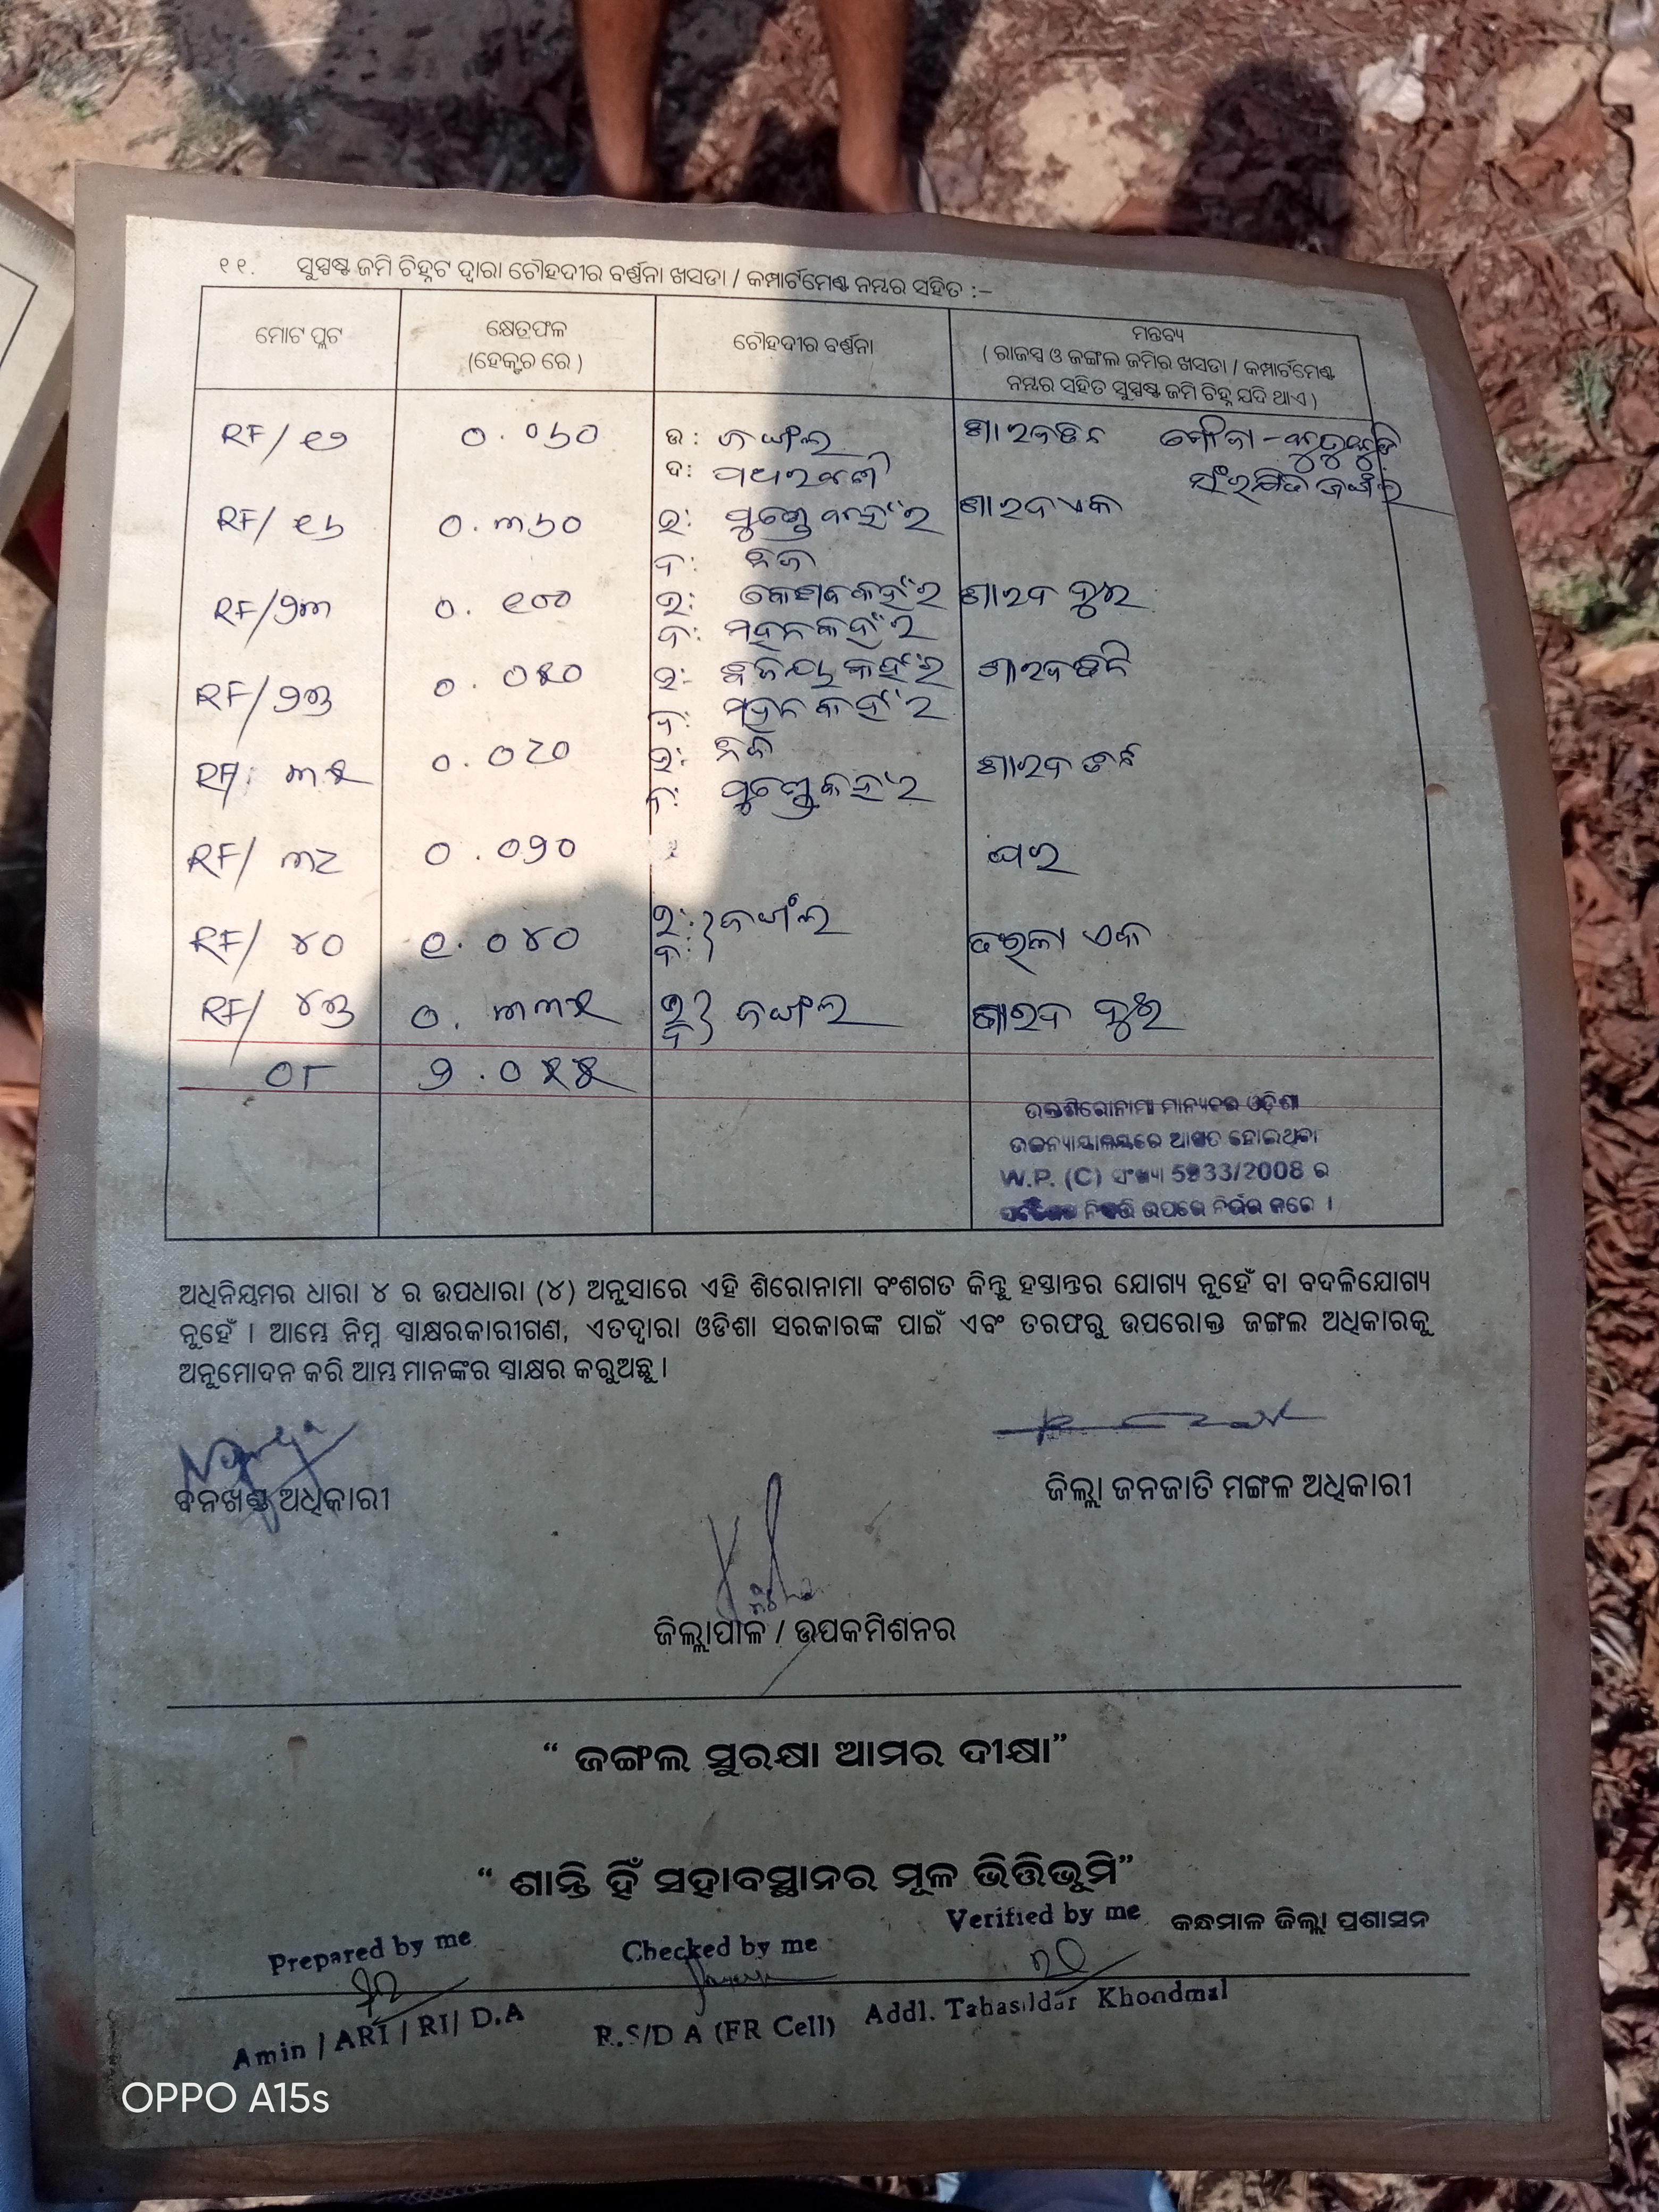 ୧୧. ସୁସ୍ପଷ୍ଟ ଜମି ଚିହ୍ନଟ ଦ୍ୱାରା ଚୌହଦୀର ବର୍ଣ୍ଣନା ଖସଡା / କମ୍ପାର୍ଟମେଣ୍ଟ ନମ୍ବର ସହିତ :–
ମୋଟ ପ୍ଲଟ
କ୍ଷେତ୍ରଫଳ
(ହେକ୍ଟର ରେ )
ଚୌହଦୀର ବର୍ଣ୍ଣନା
ମନ୍ତବ୍ୟ
( ରାଜସ୍ୱ ଓ ଜଙ୍ଗଲ ଜମିର ଖସଡା / କମ୍ପାର୍ଟମେଣ୍ଟ
ନମ୍ବର ସହିତ ସୁସ୍ପଷ୍ଟ ଜମି ଚିହ୍ନ ଯଦି ଥାଏ )
RF/ ୧୬ ୦.୦୬୦ ଉ: ଜଙ୍ଗଲ ମୌଜା –
ଦ: ସଂରକ୍ଷିତ ଜଙ୍ଗଲ
RF/ ୧୬ ୦.୩୬୦ ଉ: କହଁର ଶାରଦ ଏକ
ଦ: ନିଜ
RF/୨୩ ୦.୧୦୦ ଉ: କହଁର ଶାରଦ ଦୁଇ
ଦ: ମହନ କହଁର
RF/୨୩ ୦.୦୫୦ ଉ: କହଁର ଶାରଦ ତିନି
ଦ: ମହନ କହଁର
RF/ ୩୫ ୦.୦୮୦ ଉ: ନିଜ ଶାରଦ
ଦ: କହଁର
RF/ ୩୮ ୦.୦୨୦ ଘର
RF/ ୪୦ ୧.୦୪୦ ଉ: ଦ: ଜଙ୍ଗଲ ଏକ
RF/ ୪୩ ୦.୩୩୫ ଉ ଦ ଜଙ୍ଗଲ ଶାରଦ ଦୁଇ
୦୮ ୨.୦୫୫
ଉକ୍ତ ଶିରୋନାମା ମାନ୍ୟବର ଓଡ଼ିଶା
ଉଚ୍ଚନ୍ୟାୟାଳୟରେ ଆଗତ ହୋଇଥିବା
W.P. (C) ସଂଖ୍ୟା 5933/2008 ର
ଉପରେ ନିର୍ଭର କରେ ।
ଅଧିନିୟମର ଧାରା ୪ ର ଉପଧାରା (୪) ଅନୁସାରେ ଏହି ଶିରୋନାମା ବଂଶଗତ କିନ୍ତୁ ହସ୍ତାନ୍ତର ଯୋଗ୍ୟ ନୁହେଁ ବା ବଦଳିଯୋଗ୍ୟ
ନୁହେଁ । ଆମ୍ଭେ ନିମ୍ନ ସ୍ୱାକ୍ଷରକାରୀଗଣ, ଏତଦ୍ୱାରା ଓଡିଶା ସରକାରଙ୍କ ପାଇଁ ଏବଂ ତରଫରୁ ଉପରୋକ୍ତ ଜଙ୍ଗଲ ଅଧିକାରକୁ
ଅନୁମୋଦନ କରି ଆମ୍ଭ ମାନଙ୍କର ସ୍ୱାକ୍ଷର କରୁଅଛୁ ।
ବନଖଣ୍ଡ ଅଧିକାରୀ
ଜିଲ୍ଲା ଜନଜାତି ମଙ୍ଗଳ ଅଧିକାରୀ
ଜିଲ୍ଲାପାଳ / ଉପକମିଶନର
“ ଜଙ୍ଗଲ ସୁରକ୍ଷା ଆମର ଦୀକ୍ଷା”
“ ଶାନ୍ତି ହିଁ ସହାବସ୍ଥାନର ମୂଳ ଭିତ୍ତିଭୂମି”
Prepared by me Checked by me Verified by me କନ୍ଧମାଳ ଜିଲ୍ଲା ପ୍ରଶାସନ
Amin / ARI / RI/ D.A R.S/D A (FR Cell) Addl. Tahasildar Khondmal
OPPO A15s